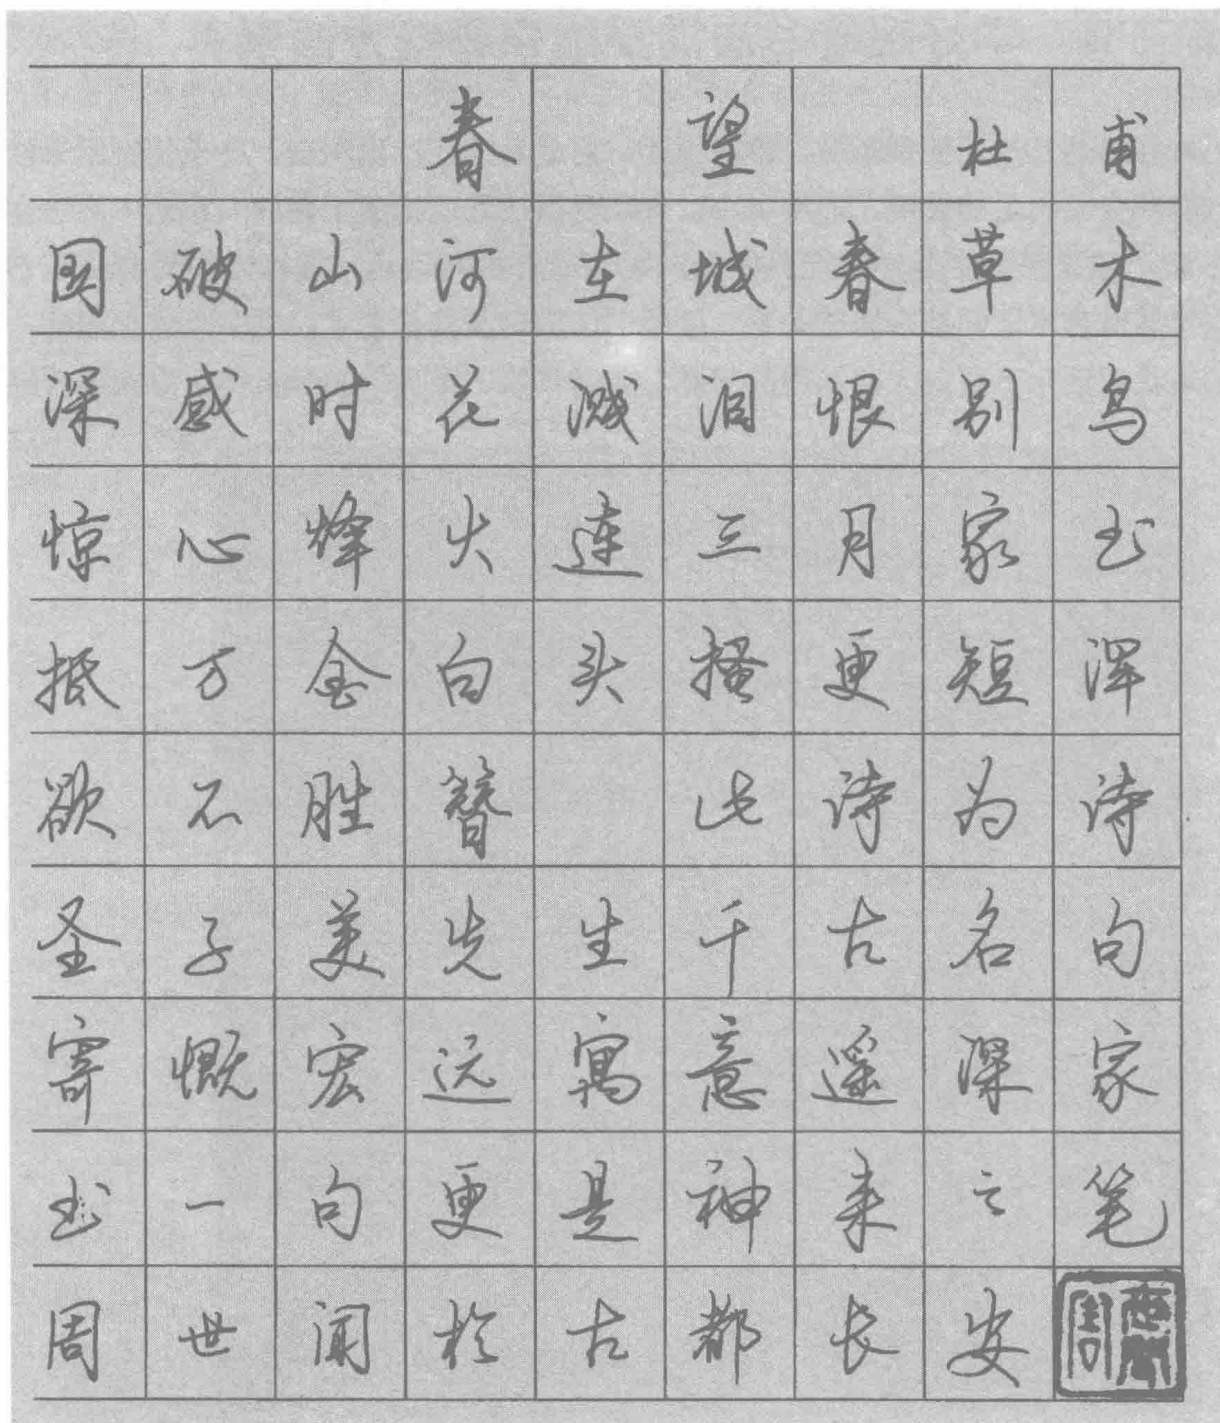 春望 杜甫
国破山河在城春草木
深感时花溅泪恨别鸟
惊心烽火连三月家书
抵万金白头搔更短浑
欲不胜簪 此诗为诗
圣子美先生千古名句
寄慨宏远寓意遥深家
书一句更是神来之笔
周世闻于古都长安